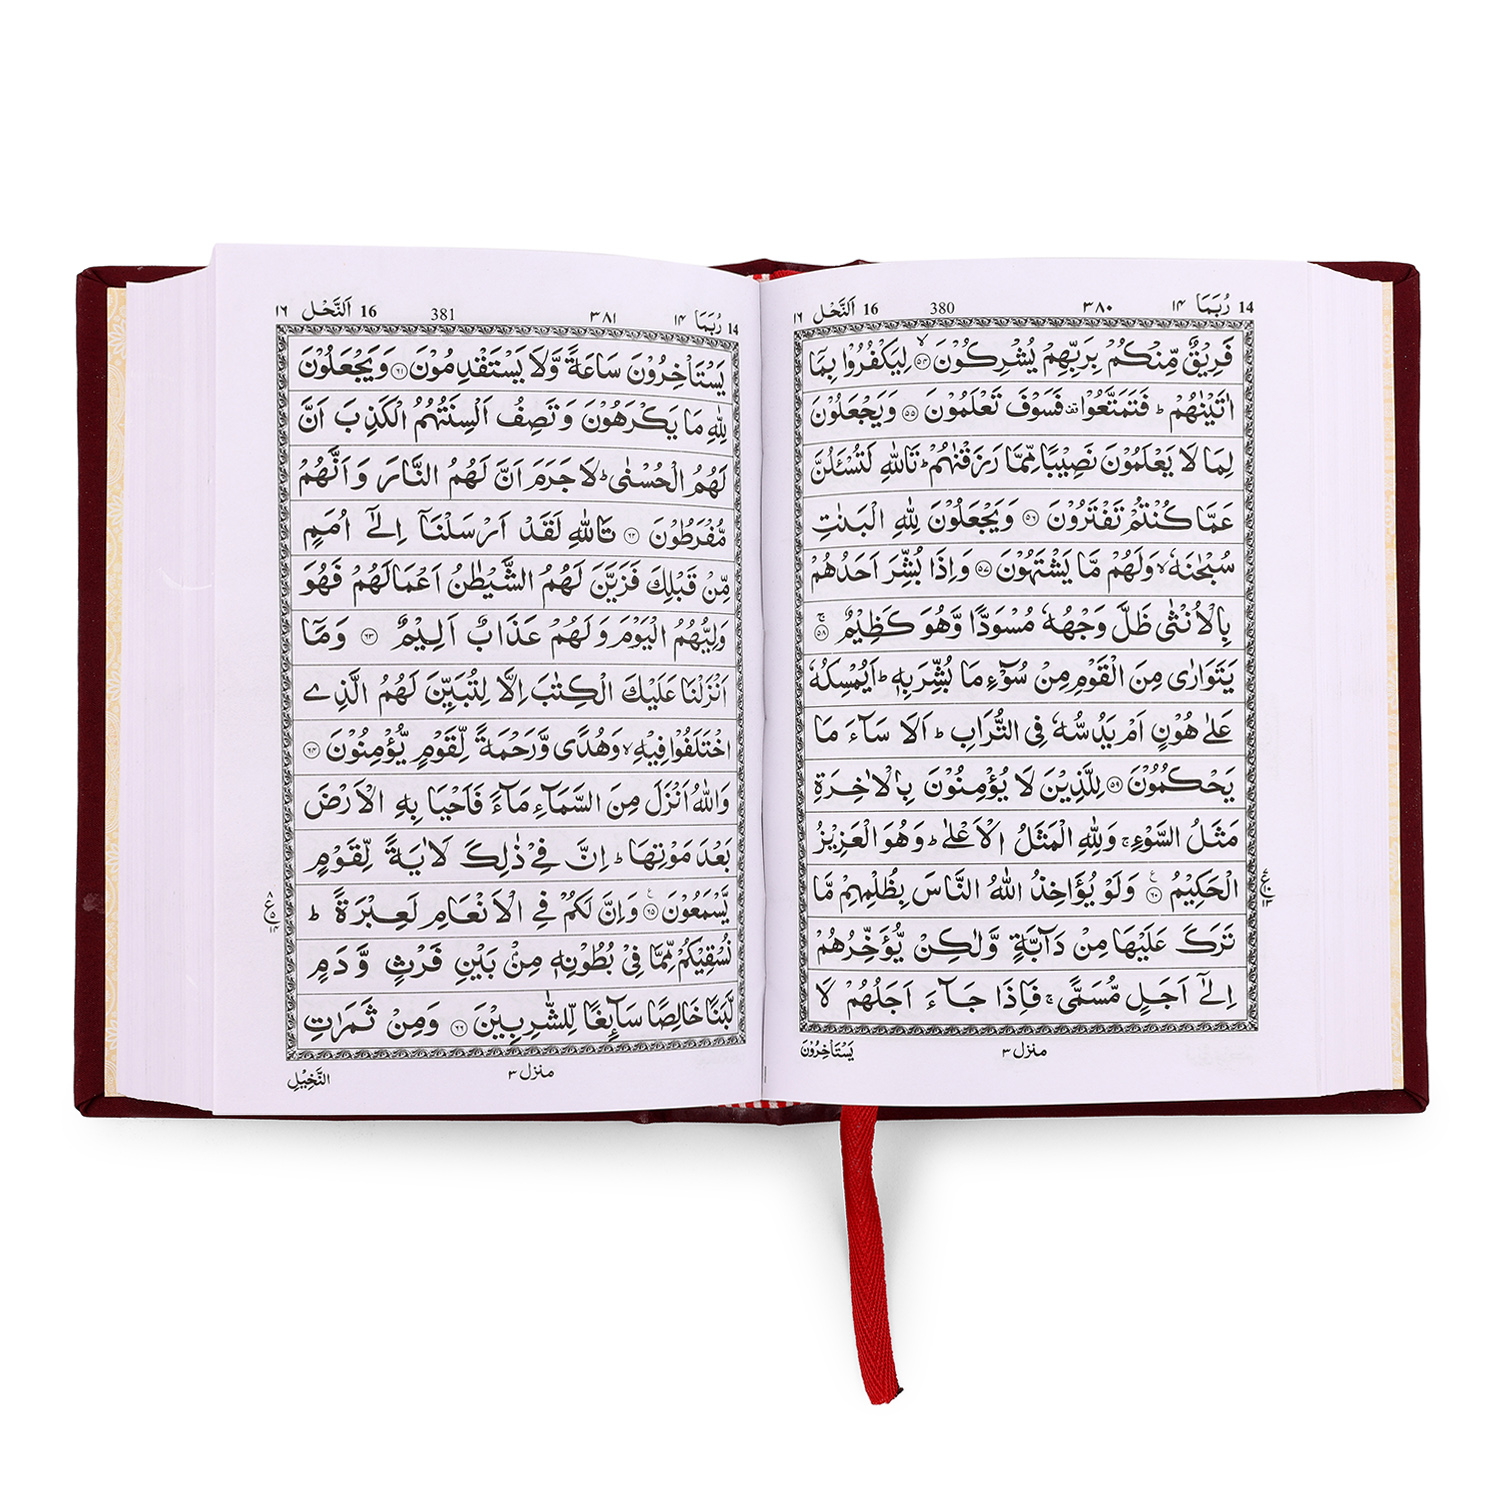 14 رُبَمَا ۱۴ ۳۸۰ 380 16 اَلنَّحْل ۱۶
فَرِيْقٌ مِّنْكُمْ بِرَبِّهِمْ يُشْرِكُوْنَ ۙ‏﴿۵۴﴾ لِيَكْفُرُوْا بِمَاۤ
اٰتَيْنٰهُمْ ؕ فَتَمَتَّعُوْا ۟ فَسَوْفَ تَعْلَمُوْنَ ﴿۵۵﴾ وَيَجْعَلُوْنَ
لِمَا لَا يَعْلَمُوْنَ نَصِيْبًا مِّمَّا رَزَقْنٰهُمْ ؕ تَاللّٰهِ لَتُسْـَٔلُنَّ
عَمَّا كُنْتُمْ تَفْتَرُوْنَ ﴿۵۶﴾ وَيَجْعَلُوْنَ لِلّٰهِ الْبَنٰتِ
سُبْحٰنَهٗ ۙ وَلَهُمْ مَّا يَشْتَهُوْنَ ﴿۵۷﴾ وَاِذَا بُشِّرَ اَحَدُهُمْ
بِالْاُنْثٰى ظَلَّ وَجْهُهٗ مُسْوَدًّا وَّهُوَ كَظِيْمٌ ۚ ﴿۵۸﴾
يَتَوَارٰى مِنَ الْقَوْمِ مِنْ سُوْٓءِ مَا بُشِّرَ بِهٖ ؕ اَيُمْسِكُهٗ
عَلٰى هُوْنٍ اَمْ يَدُسُّهٗ فِى التُّرَابِ ؕ اَلَا سَآءَ مَا
يَحْكُمُوْنَ ﴿۵۹﴾ لِلَّذِيْنَ لَا يُؤْمِنُوْنَ بِالْاٰخِرَةِ
مَثَلُ السَّوْءِ ۚ وَلِلّٰهِ الْمَثَلُ الْاَعْلٰى ؕ وَهُوَ الْعَزِيْزُ
الْحَكِيْمُ ﴿۶۰﴾ وَلَوْ يُؤَاخِذُ اللّٰهُ النَّاسَ بِظُلْمِهِمْ مَّا
تَرَكَ عَلَيْهَا مِنْ دَآبَّةٍ وَّلٰكِنْ يُّؤَخِّرُهُمْ
اِلٰٓى اَجَلٍ مُّسَمًّى ۚ فَاِذَا جَآءَ اَجَلُهُمْ لَا
منزل ۳ يَسْتَاْخِرُوْنَ
14 رُبَمَا ۱۴ ۳۸۱ 381 16 اَلنَّحْل ۱۶
يَسْتَاْخِرُوْنَ سَاعَةً وَّلَا يَسْتَقْدِمُوْنَ ﴿۶۱﴾ وَيَجْعَلُوْنَ
لِلّٰهِ مَا يَكْرَهُوْنَ وَتَصِفُ اَلْسِنَتُهُمُ الْكَذِبَ اَنَّ
لَهُمُ الْحُسْنٰى ؕ لَا جَرَمَ اَنَّ لَهُمُ النَّارَ وَاَنَّهُمْ
مُّفْرَطُوْنَ ﴿۶۲﴾ تَاللّٰهِ لَقَدْ اَرْسَلْنَاۤ اِلٰٓى اُمَمٍ
مِّنْ قَبْلِكَ فَزَيَّنَ لَهُمُ الشَّيْطٰنُ اَعْمَالَهُمْ فَهُوَ
وَلِيُّهُمُ الْيَوْمَ وَلَهُمْ عَذَابٌ اَلِيْمٌ ﴿۶۳﴾ وَمَاۤ
اَنْزَلْنَا عَلَيْكَ الْكِتٰبَ اِلَّا لِتُبَيِّنَ لَهُمُ الَّذِے
اخْتَلَفُوْا فِيْهِ ۙ وَهُدًى وَّرَحْمَةً لِّقَوْمٍ يُّؤْمِنُوْنَ ﴿۶۴﴾
وَاللّٰهُ اَنْزَلَ مِنَ السَّمَآءِ مَآءً فَاَحْيَا بِهِ الْاَرْضَ
بَعْدَ مَوْتِهَا ؕ اِنَّ فِيْ ذٰلِكَ لَاٰيَةً لِّقَوْمٍ
يَّسْمَعُوْنَ ﴿۶۵﴾ وَاِنَّ لَكُمْ فِي الْاَنْعَامِ لَعِبْرَةً ؕ
نُسْقِيْكُمْ مِّمَّا فِيْ بُطُوْنِهٖ مِنْۢ بَيْنِ فَرْثٍ وَّدَمٍ
لَّبَنًا خَالِصًا سَآئِغًا لِّلشّٰرِبِيْنَ ﴿۶۶﴾ وَمِنْ ثَمَرٰتِ
منزل ۳ النَّخِيْلِ